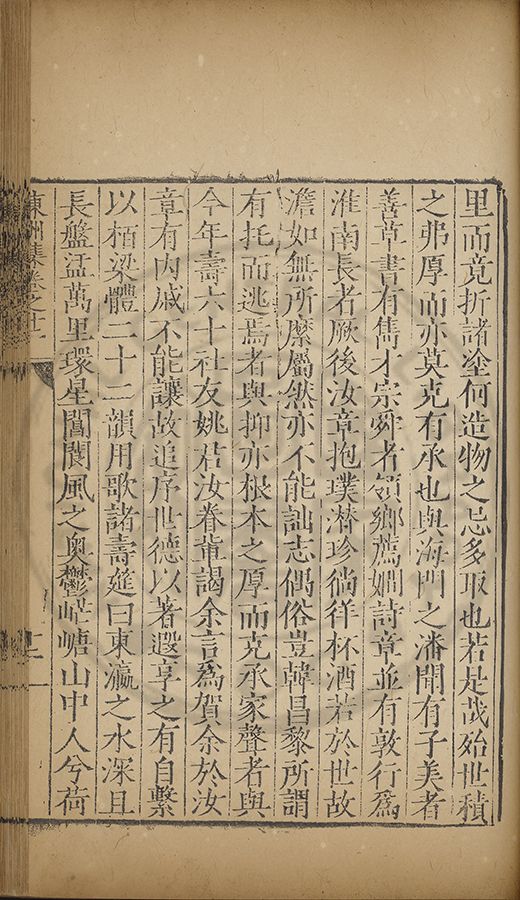 里而竟折諸塗何造物之忌多取也若是哉殆世積
之弗厚而亦莫克有承也與海門之潘聞有子美者
善草書有雋才宗舜者領鄉薦嫺詩章並有敦行爲
淮南長者厥後汝章抱璞潛珍徜徉杯酒若於世故
澹如無所縻屬然亦不能詘志偶俗豈韓昌黎所謂
有托而逃焉者與抑亦根本之厚而克承家聲者與
今年壽六十社友姚君汝眷輩謁余言爲賀余於汝
章有内戚不能讓故追序世德以著遐享之有自繫
以栢梁體二十二韻用歌諸壽筵曰東瀛之水深且
長盤盂萬里環星閶閬風之奥鬱嵯峨山中人兮荷
東洲集卷之十一